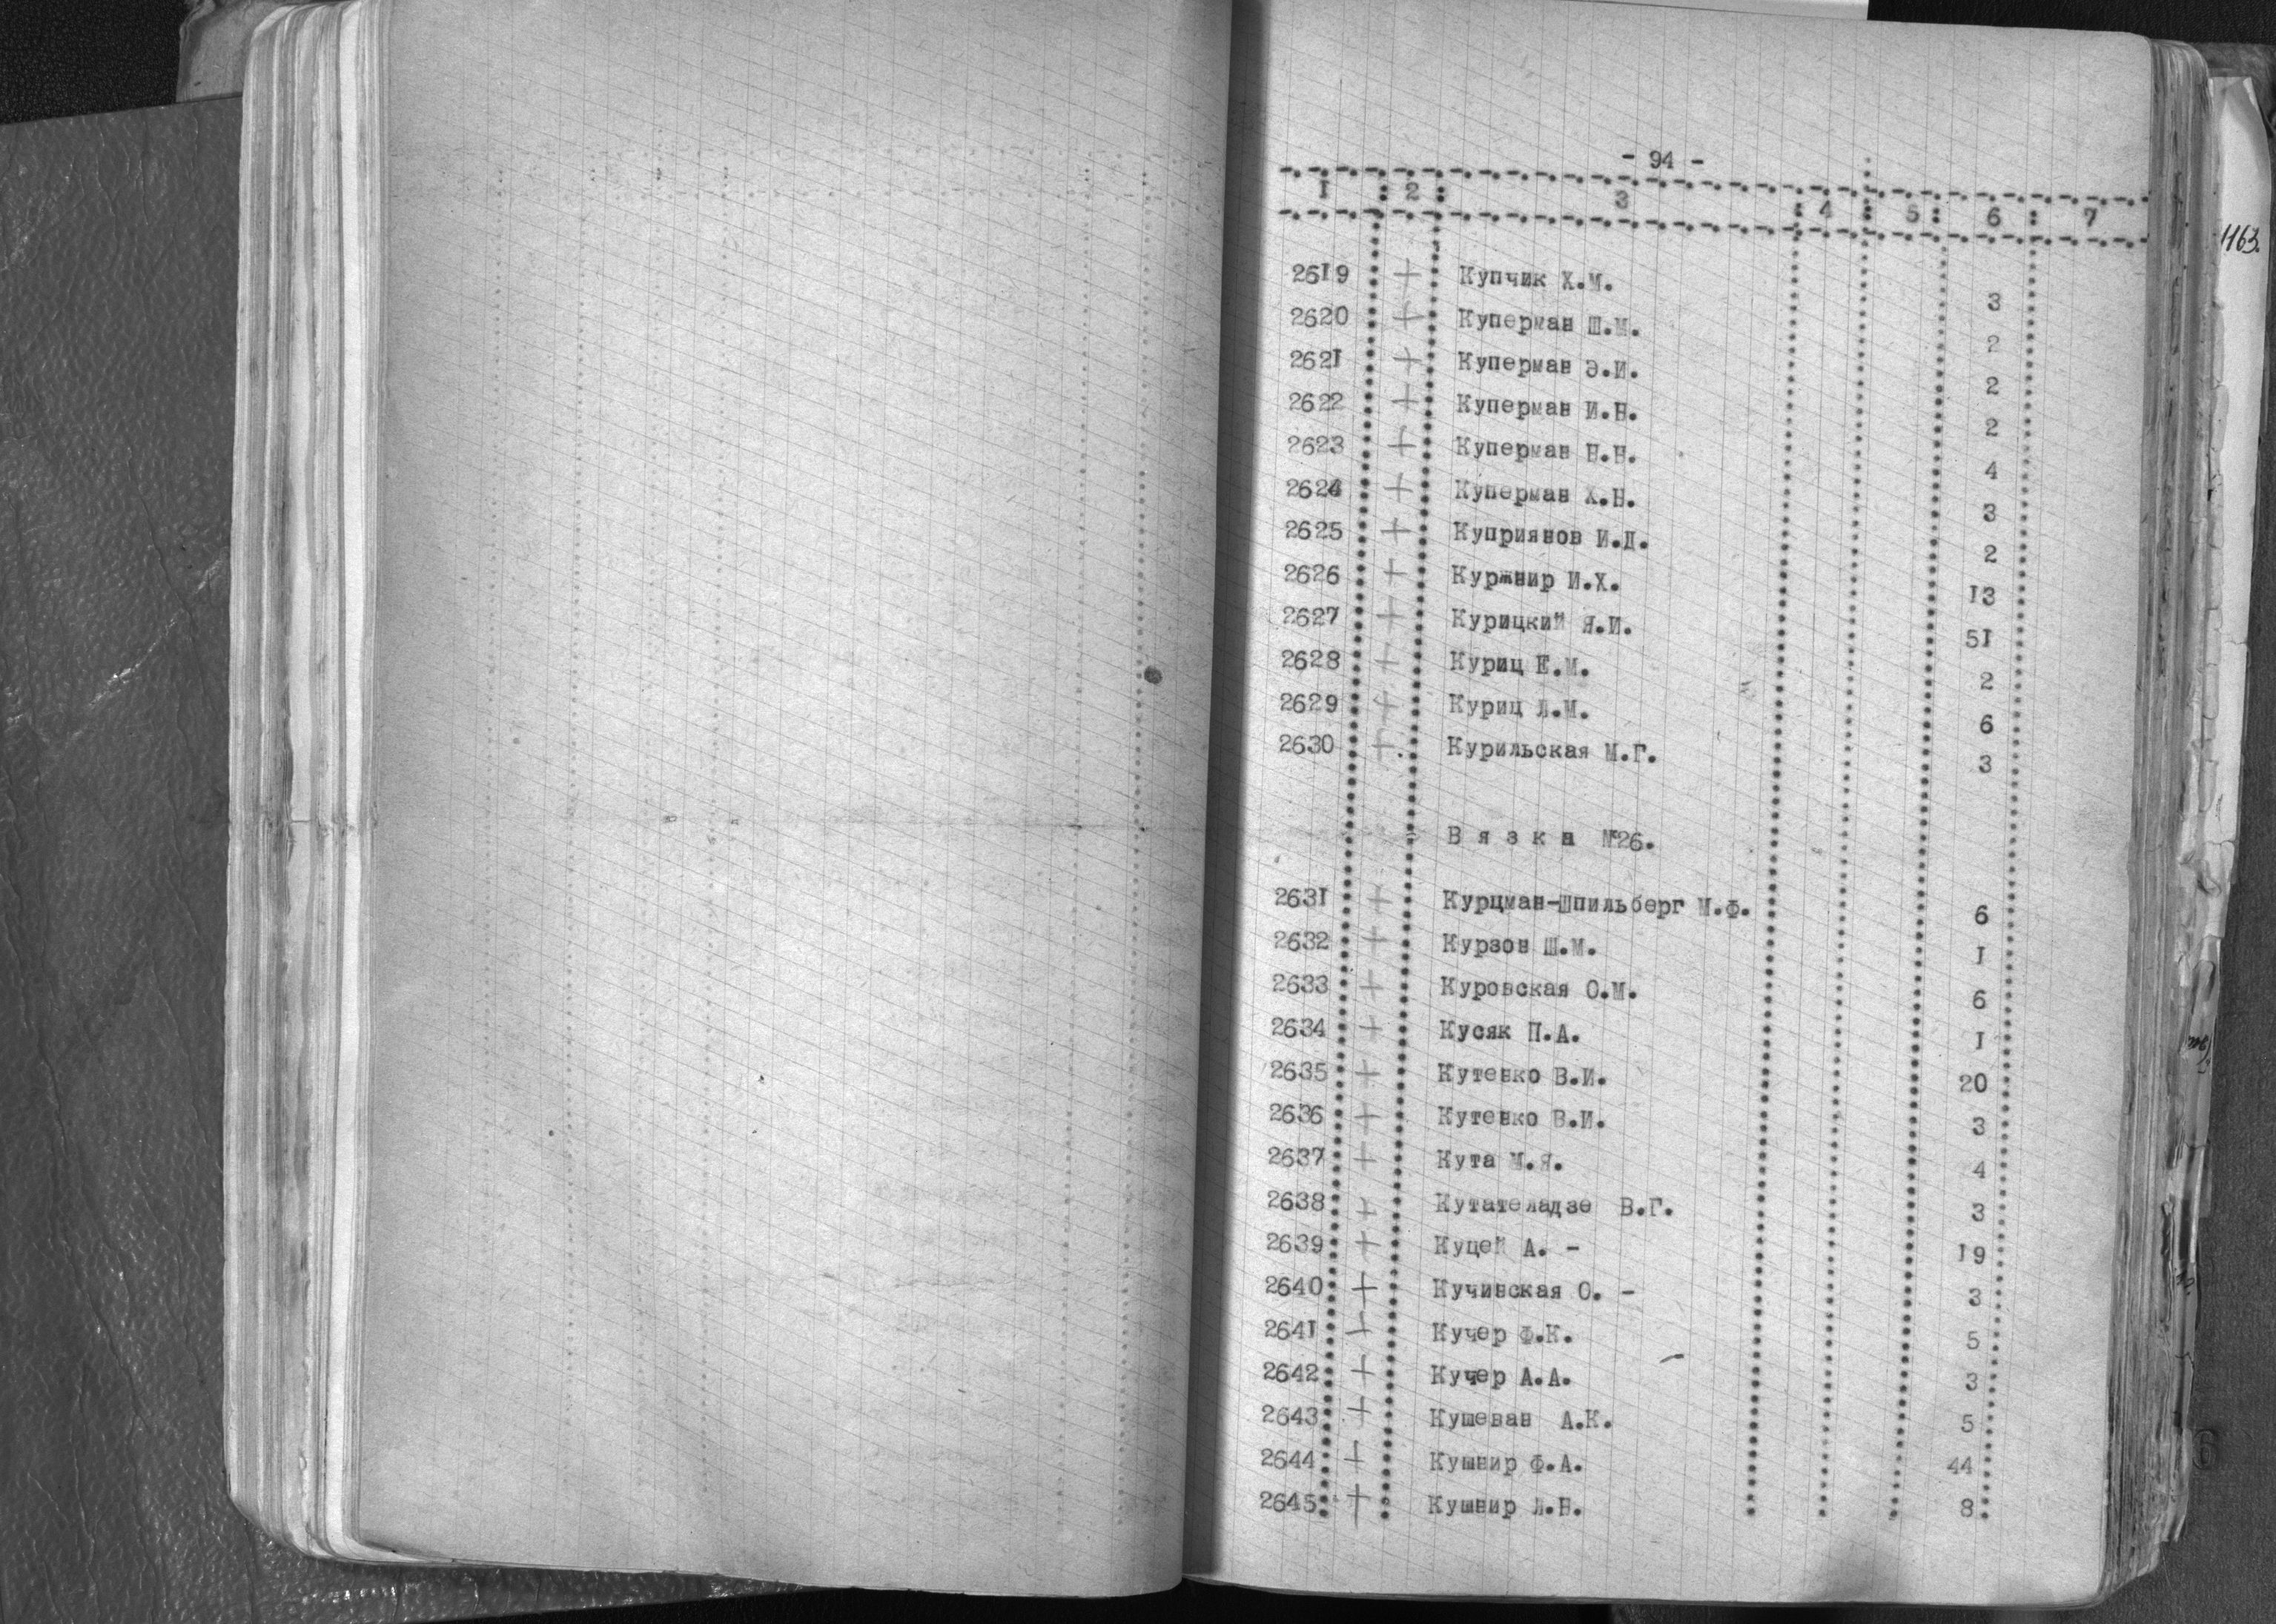 - 94 -
I : 2 : 3 : 4 : 5 : 6 : 7
1163.
2619 + Купчик Х.М. 3
2620 + Куперман Ш.М. 2
2621 + Куперман Э.И. 2
2622 + Куперман И.Н. 2
2623 + Куперман Н.Н. 4
2624 + Куперман Х.Н. 3
2625 + Куприянов И.Д. 2
2626 + Куржнир И.Х. 13
2627 + Курицкий Я.И. 51
2628 + Куриц Е.М. 2
2629 + Куриц Л.М. 6
2630 + Курильская М.Г. 3
В я з к а №26.
2631 + Курцман-Шпильберг М.Ф. 6
2632 + Курзон Ш.М. I
2633 + Куровская О.М. 6
2634 + Кусяк П.А. I
2635 + Кутенко В.И. 20
2636 + Кутенко В.И. 3
2637 + Кута М.Я. 4
2638 + Кутателадзе В.Г. 3
2639 + Куцей А. - 19
2640 + Кучинская О. - 3
2641 + Кучер Ф.К. 5
2642 + Кучер А.А. 3
2643 + Кушеван А.К. 5
2644 + Кушнир Ф.А. 44
2645 + Кушнир Л.Н. 8